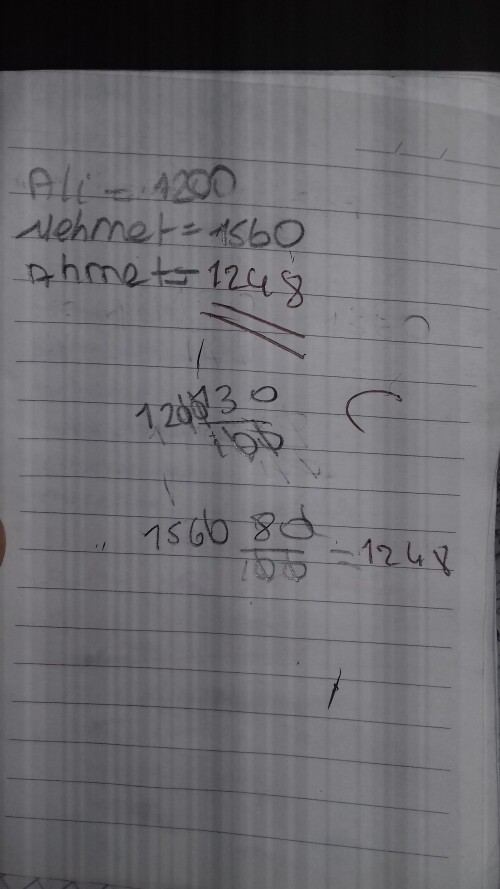 Ali = 1200
Mehmet = 1560
Ahmet = 1248
1200 130
100
1560 80 = 1248
100